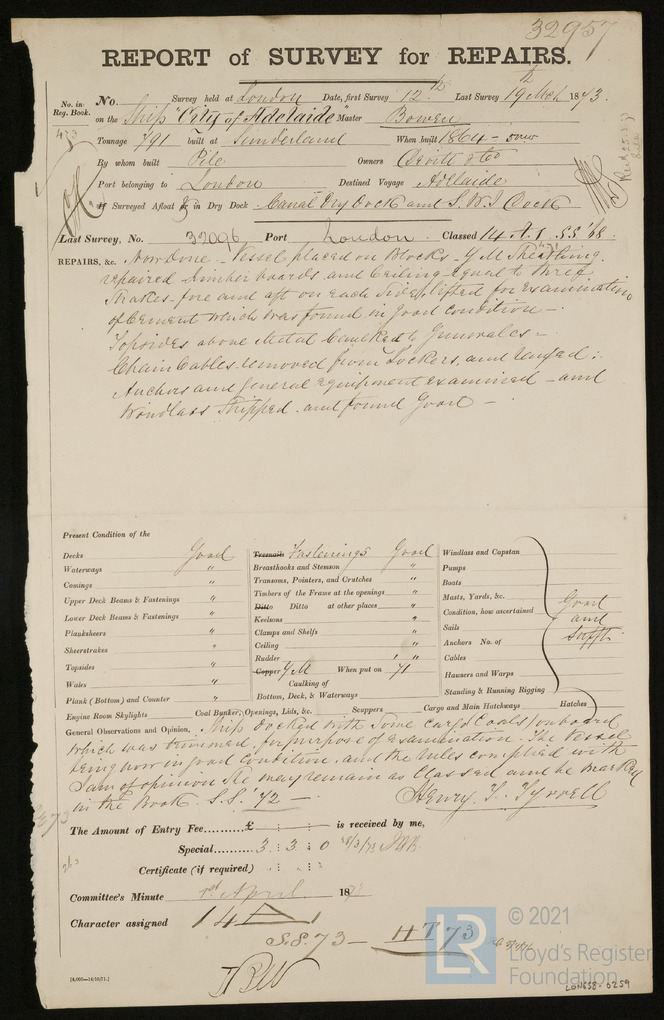 32957
REPORT of SURVEY for REPAIRS.
No. in Reg. Book.
No. Survey held at London Date, first Survey 12th Last Survey 19th Mch 1873.
on the Ship "City of Adelaide" Master Bowen
Tonnage 791 built at Sunderland When built 1864 - 5mo
By whom built Pile Owners Devitt & Co
Port belonging to London Destined Voyage Adelaide
If Surveyed Afloat or in Dry Dock Canal Dry Dock and S.W.I Dock
Last Survey, No. 32096 Port London Classed 14 A.1 SS '68.
REPAIRS, &c. Now done - Vessel placed on Blocks - Y.M Sheathing "71"
repaired Limber boards and Ceiling equal to three
Strakes fore and aft on each side lifted for Examination
of Cement which was found in good condition -
Topsides above Metal Caulked to Gunwales -
Chain Cables removed from Lockers, and ranged:
Anchors and general equipment examined - and
Windlass Stripped and found Good -
Present Condition of the
Decks Good
Waterways "
Comings "
Upper Deck Beams & Fastenings "
Lower Deck Beams & Fastenings "
Planksheers "
Sheerstrakes "
Topsides "
Wales "
Plank (Bottom) and Counter "
Engine Room Skylights
Treenails Fastenings Good
Breasthooks and Stemson "
Transoms, Pointers, and Crutches "
Timbers of the Frame at the openings "
Ditto Ditto at other places "
Keelsons "
Clamps and Shelfs "
Ceiling "
Rudder "
Copper Y M When put on 71
Caulking of
Bottom, Deck, & Waterways
Windlass and Capstan
Pumps
Boats
Masts, Yards, &c.
Condition, how ascertained
Sails
Anchors No. of
Cables
Hausers and Warps
Standing & Running Rigging
Good
and
Sufft.
Coal Bunker, Openings, Lids, &c. Scuppers Cargo and Main Hatchways Hatches
General Observations and Opinion, Ship docked with some cargo (Coals) onboard
which was trimmed, for purpose of Examination. The Vessel
being now in good Condition, and the rules complied with
I am of opinion she may remain as Classed and be marked
in the Book S.S. '72 -
Henry T. Tyrrell
The Amount of Entry Fee......... £ : : is received by me,
Special.......... 3 : 3 : 0
Certificate (if required)
Committee's Minute 1st April 187
Character assigned 14 A 1
S.S. 73 - HT 73
[4,000—14/10/71.]
LR
© 2021
Lloyd's Register
Foundation
LON658-0259